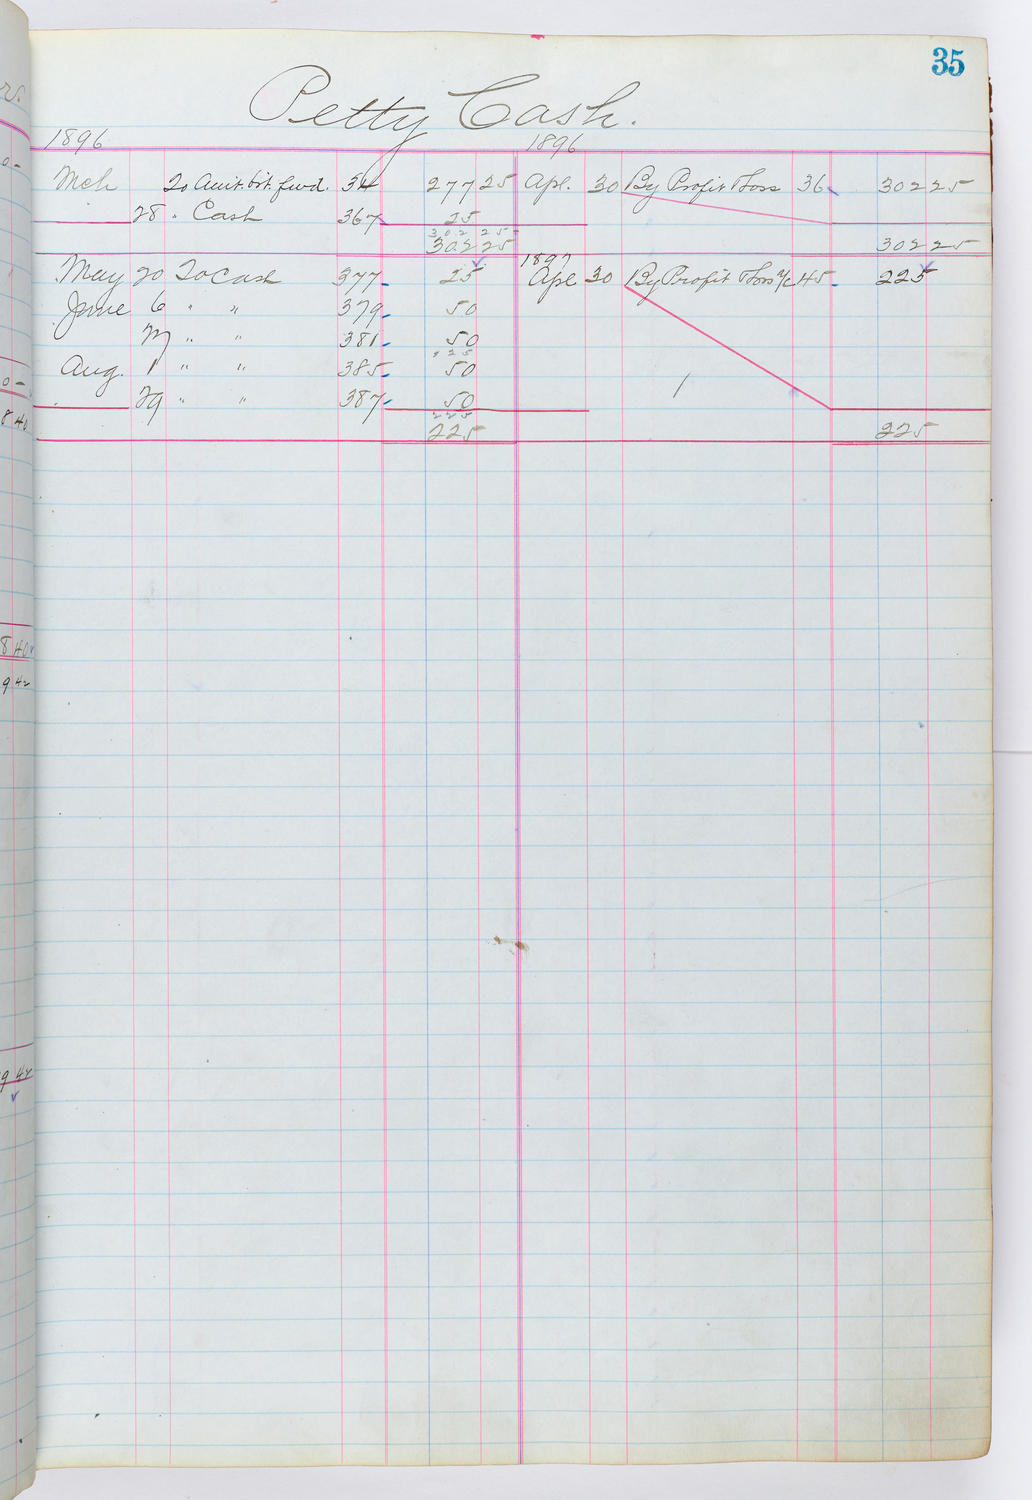 35
Petty Cash.
1896 1896
Mch To Amt. brt. fwd. 34 277 25 Apl. 30 By Profit & Loss 36 302 25
28 " Cash 367 25
302 25
302 25 302 25
1897
May 20 To Cash 377 25 Apl 30 By Profit & Loss a/c 45 225
June 6 " " 379 50
" " 381 50
125
Aug. 1 " " 385 50
29 " " 387 50
225
225 225
0-
0-
8 40
8 40
9 42
9 42